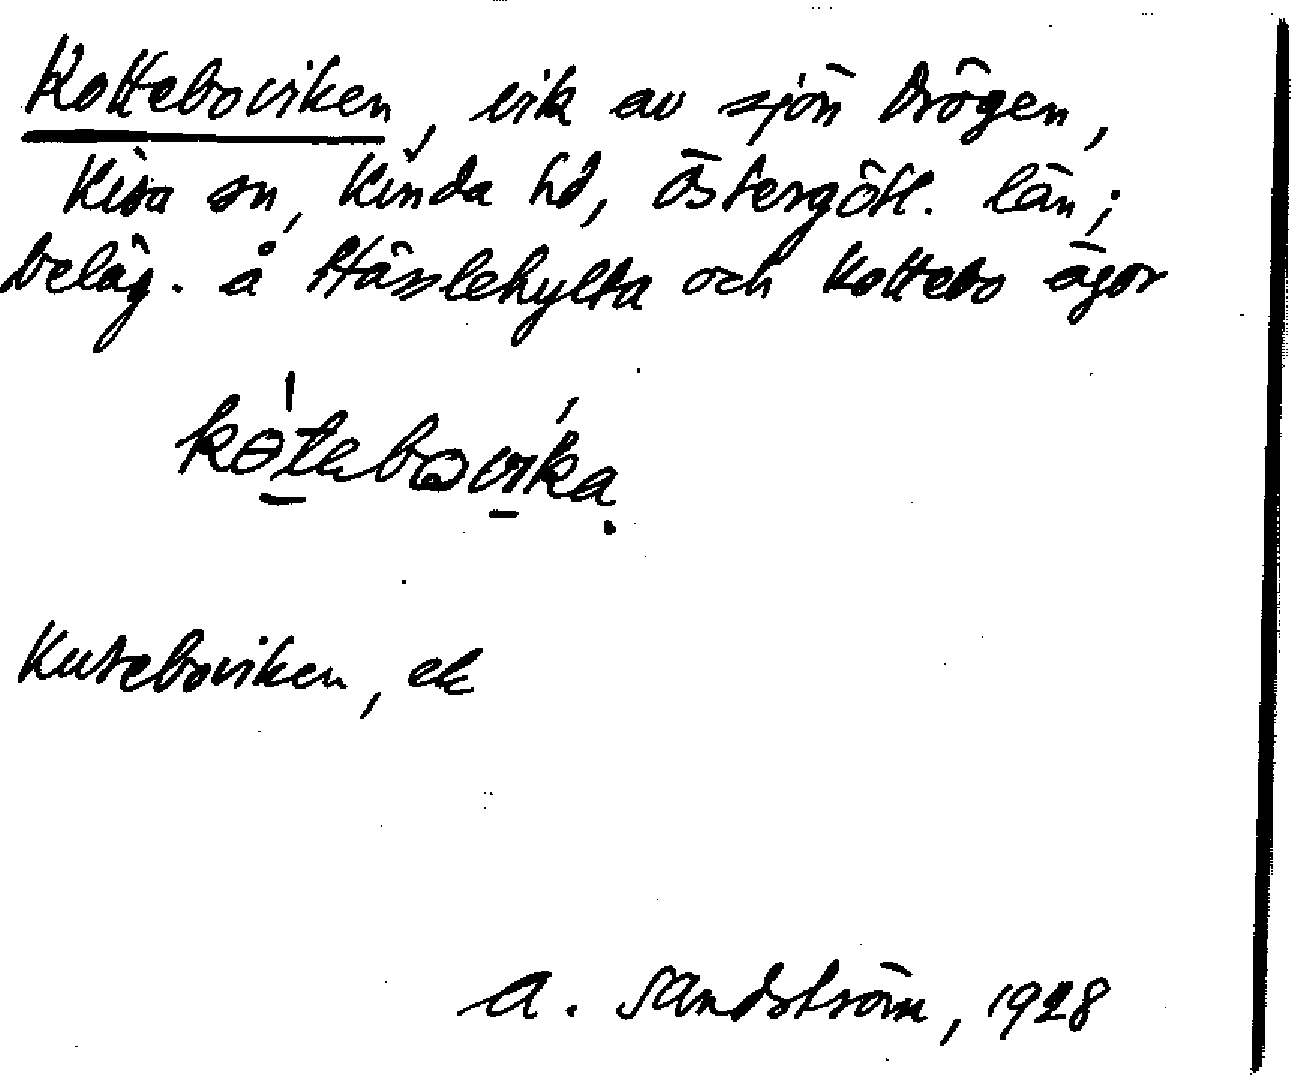 Kotteboviken, vik av sjön Drögen,
Kisa sn, Kinda hd, Östergötl. län;
beläg. å Hässlehylta och Kottebo ägor
kotebovika
Kuteboviken, ek
A. Sandström, 1928